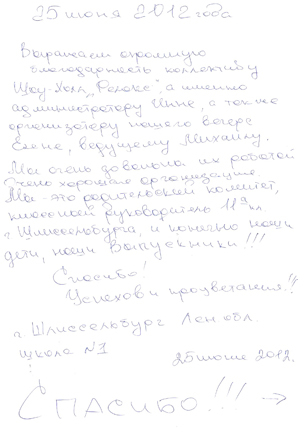 25 июня 2012 года
Выражаем огромную
благодарность коллективу
Шоу-Холл „Релакс", а именно
администратору Инне, а также
организатору нашего вечера
Елене, ведущему Михаилу.
Мы очень довольны их работой
Очень хорошая организация.
Мы - это родительский комитет,
классный руководитель 11 кл
г. Шлиссельбурга, и конечно наши
дети, наши Выпускники!!!
Спасибо!
Успехов и процветания!!
г. Шлиссельбург Лен обл.
школа №1
25 июня 2012.
СПАСИБО!!! →